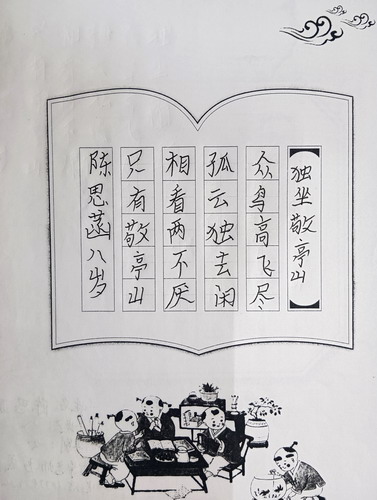 独坐敬亭山
众鸟高飞尽
孤云独去闲
相看两不厌
只有敬亭山
陈思菡八岁